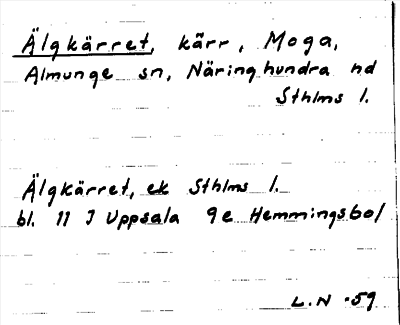 Älgkärret, kärr, Moga,
Almunge sn, Näringhundra hd
Sthlms l.
Älgkärret, ek Sthlms l.
bl. 11 I Uppsala 9e Hemmingsbol
L.N -59